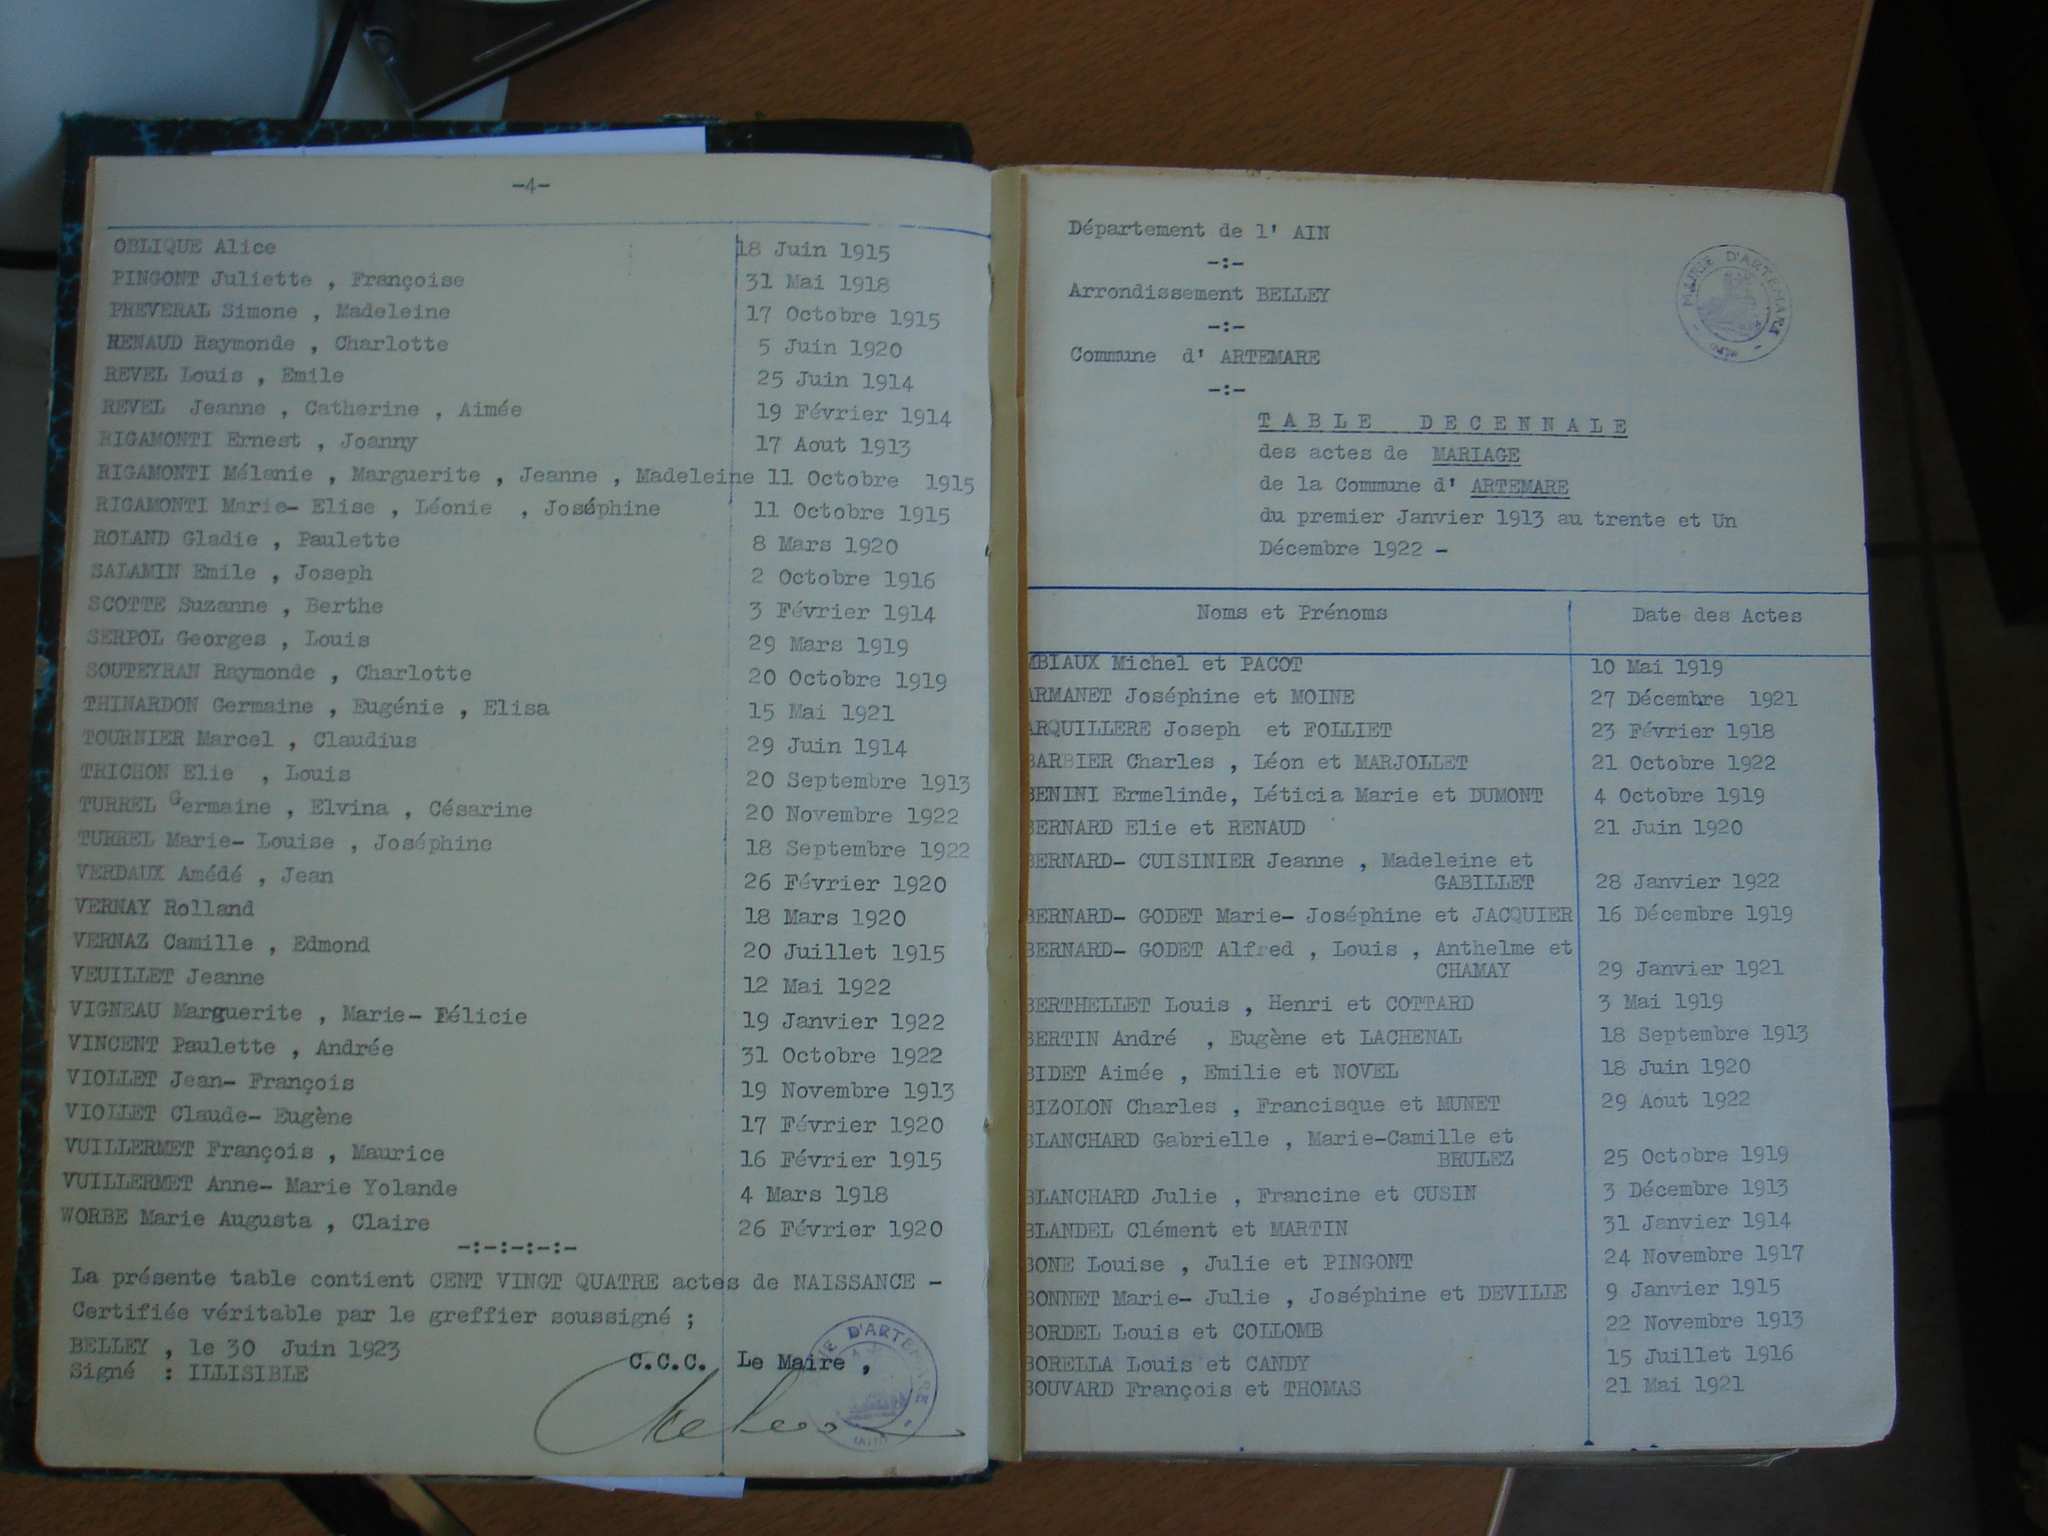 -4-
OBLIQUE Alice 18 Juin 1915
PINGONT Juliette , Françoise 31 Mai 1918
PREVERAL Simone , Madeleine 17 Octobre 1915
RENAUD Raymonde , Charlotte 5 Juin 1920
REVEL Louis , Emile 25 Juin 1914
REVEL Jeanne , Catherine , Aimée 19 Février 1914
RIGAMONTI Ernest , Joanny 17 Aout 1913
RIGAMONTI Mélanie , Marguerite , Jeanne , Madeleine 11 Octobre 1915
RIGAMONTI Marie- Elise , Léonie , Joséphine 11 Octobre 1915
ROLAND Gladie , Paulette 8 Mars 1920
SALAMIN Emile , Joseph 2 Octobre 1916
SCOTTE Suzanne , Berthe 3 Février 1914
SERPOL Georges , Louis 29 Mars 1919
SOUTEYRAN Raymonde , Charlotte 20 Octobre 1919
THINARDON Germaine , Eugénie , Elisa 15 Mai 1921
TOURNIER Marcel , Claudius 29 Juin 1914
TRICHON Elie , Louis 20 Septembre 1913
TURREL Germaine , Elvina , Césarine 20 Novembre 1922
TURREL Marie- Louise , Joséphine 18 Septembre 1922
VERDAUX Amédé , Jean 26 Février 1920
VERNAY Rolland 18 Mars 1920
VERNAZ Camille , Edmond 20 Juillet 1915
VEUILLET Jeanne 12 Mai 1922
VIGNEAU Marguerite , Marie- Félicie 19 Janvier 1922
VINCENT Paulette , Andrée 31 Octobre 1922
VIOLLET Jean- François 19 Novembre 1913
VIOLLET Claude- Eugène 17 Février 1920
VUILLERMET François , Maurice 16 Février 1915
VUILLERMET Anne- Marie Yolande 4 Mars 1918
WORBE Marie Augusta , Claire 26 Février 1920
-:-:-:-:-
La présente table contient CENT VINGT QUATRE actes de NAISSANCE -
Certifiée véritable par le greffier soussigné ;
BELLEY , le 30 Juin 1923
Signé : ILLISIBLE
C.C.C. Le Maire ,
Département de l' AIN
-:-
Arrondissement BELLEY
-:-
Commune d' ARTEMARE
-:-
MAIRIE D'ARTEMARE
TABLE DECENNALE
des actes de MARIAGE
de la Commune d' ARTEMARE
du premier Janvier 1913 au trente et Un
Décembre 1922 -
Noms et Prénoms Date des Actes
MBIAUX Michel et PACOT 10 Mai 1919
ARMANET Joséphine et MOINE 27 Décembre 1921
ARQUILLERE Joseph et FOLLIET 23 Février 1918
BARBIER Charles , Léon et MARJOLLET 21 Octobre 1922
BENINI Ermelinde, Léticia Marie et DUMONT 4 Octobre 1919
BERNARD Elie et RENAUD 21 Juin 1920
BERNARD- CUISINIER Jeanne , Madeleine et
GABILLET 28 Janvier 1922
BERNARD- GODET Marie- Joséphine et JACQUIER 16 Décembre 1919
BERNARD- GODET Alfred , Louis , Anthelme et
CHAMAY 29 Janvier 1921
BERTHELLET Louis , Henri et COTTARD 3 Mai 1919
BERTIN André , Eugène et LACHENAL 18 Septembre 1913
BIDET Aimée , Emilie et NOVEL 18 Juin 1920
BIZOLON Charles , Francisque et MUNET 29 Aout 1922
BLANCHARD Gabrielle , Marie-Camille et
BRULEZ 25 Octobre 1919
BLANCHARD Julie , Francine et CUSIN 3 Décembre 1913
BLANDEL Clément et MARTIN 31 Janvier 1914
BONE Louise , Julie et PINGONT 24 Novembre 1917
BONNET Marie- Julie , Joséphine et DEVILLE 9 Janvier 1915
BORDEL Louis et COLLOMB 22 Novembre 1913
BORELLA Louis et CANDY 15 Juillet 1916
BOUVARD François et THOMAS 21 Mai 1921